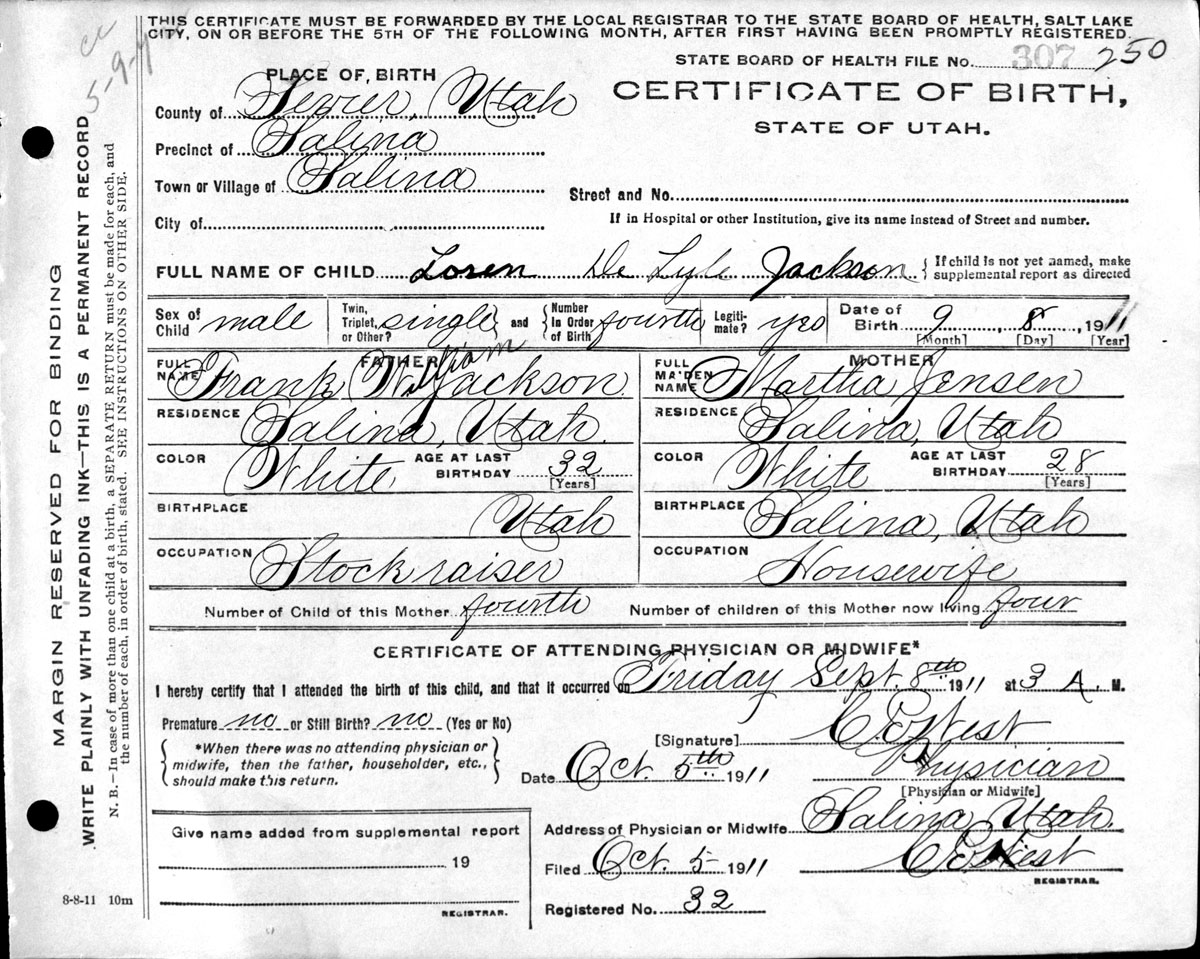 THIS CERTIFICATE MUST BE FORWARDED BY THE LOCAL REGISTRAR TO THE STATE BOARD OF HEALTH, SALT LAKE
CITY, ON OR BEFORE THE 5TH OF THE FOLLOWING MONTH, AFTER FIRST HAVING BEEN PROMPTLY REGISTERED.
STATE BOARD OF HEALTH FILE No. 307 250
CERTIFICATE OF BIRTH,
STATE OF UTAH.
PLACE OF BIRTH
County of Sevier, Utah
Precinct of Salina
Town or Village of Salina
Street and No.
City of
If in Hospital or other Institution, give its name instead of Street and number.
FULL NAME OF CHILD Loren De Lyle Jackson { If child is not yet named, make
supplemental report as directed
Sex of Child male Twin, Triplet, or Other? single } and { Number In Order of Birth fourth Legiti-mate? yes Date of Birth 9 8, 1911
[Month] [Day] [Year]
FATHER MOTHER
FULL NAME Frank William Jackson FULL MAIDEN NAME Martha Jensen
RESIDENCE Salina, Utah. RESIDENCE Salina, Utah
COLOR White AGE AT LAST BIRTHDAY 32 [Years] COLOR White AGE AT LAST BIRTHDAY 28 [Years]
BIRTHPLACE Utah BIRTHPLACE Salina, Utah
OCCUPATION Stockraiser OCCUPATION Housewife
Number of Child of this Mother fourth Number of children of this Mother now living four
CERTIFICATE OF ATTENDING PHYSICIAN OR MIDWIFE*
I hereby certify that I attended the birth of this child, and that it occurred on Friday Sept. 8th 1911 at 3 A. M.
Premature no or Still Birth? no (Yes or No)
{ *When there was no attending physician or
midwife, then the father, householder, etc.,
should make this return. }
[Signature] C E West
Physician
Date Oct. 5th 1911
[Physician or Midwife]
Address of Physician or Midwife Salina, Utah.
Filed Oct. 5 1911 C E West
REGISTRAR.
Registered No. 32
Give name added from supplemental report
19
REGISTRAR.
8-8-11 10m
MARGIN RESERVED FOR BINDING
WRITE PLAINLY WITH UNFADING INK—THIS IS A PERMANENT RECORD
N. B.—In case of more than one child at a birth, a SEPARATE RETURN must be made for each, and
the number of each, in order of birth, stated. SEE INSTRUCTIONS ON OTHER SIDE.